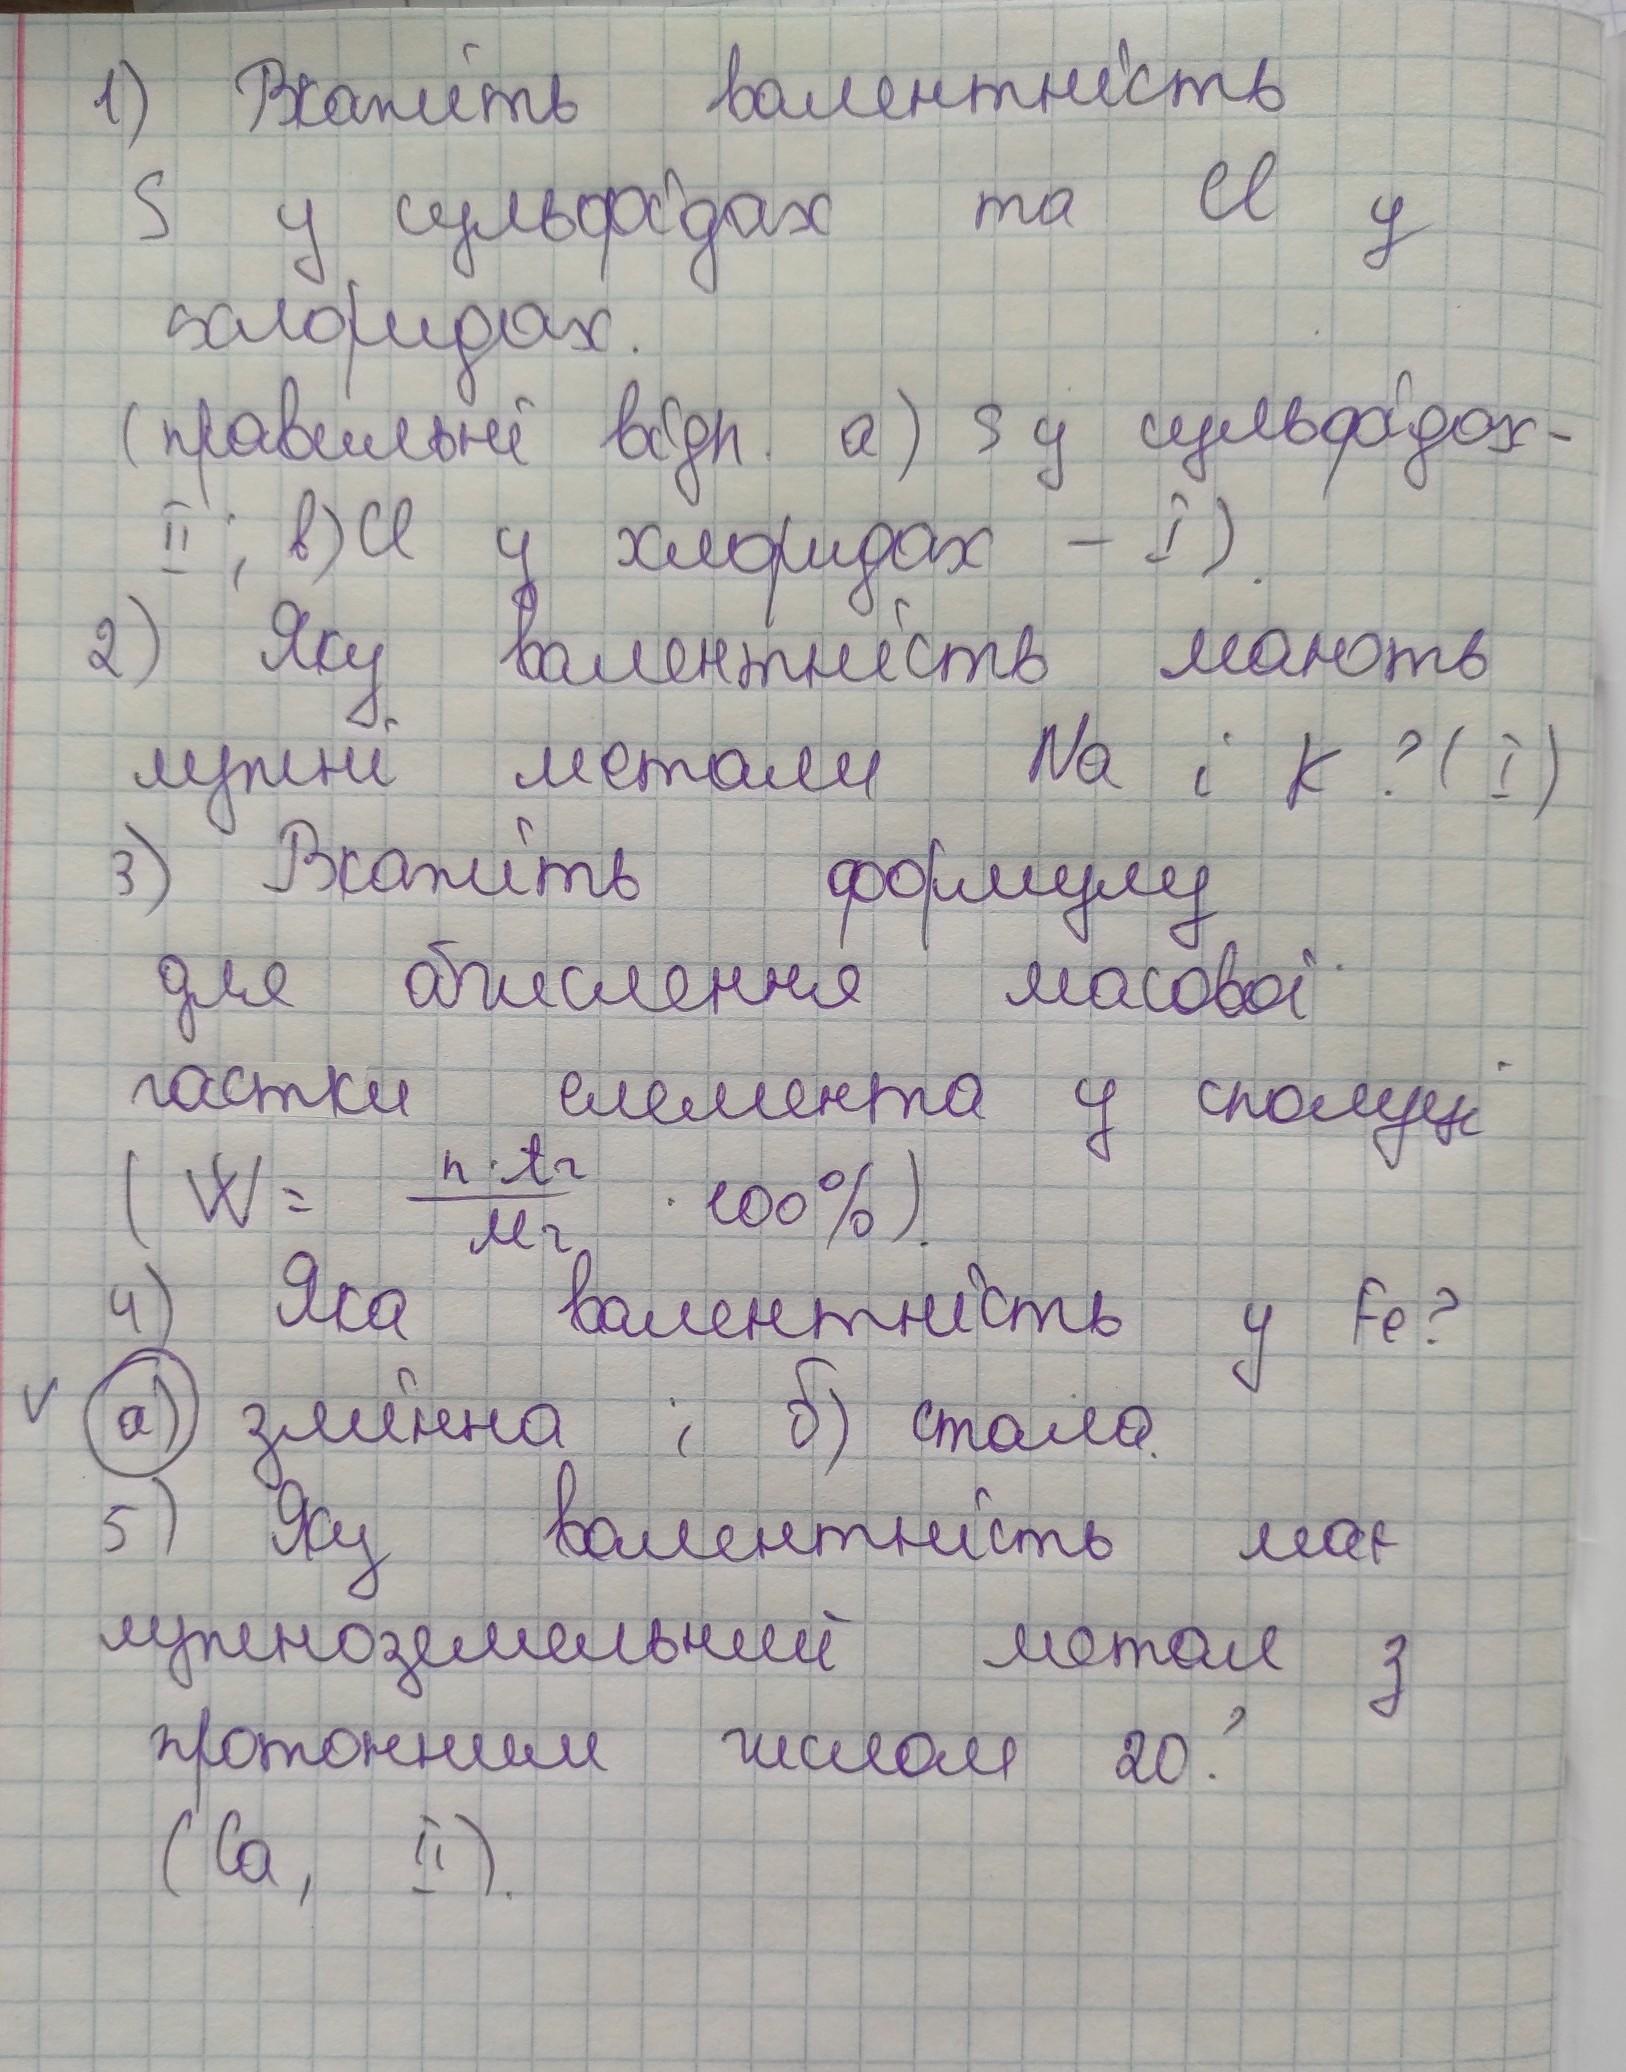 1) Вкажіть валентність
S у сульфідах та Cl у
хлоридах.
(правильні відп. а) S у сульфідах-
II; в) Cl у хлоридах - I).
2) Яку валентність мають
лужні метали Na і K? (I)
3) Вкажіть формулу
для обчислення масової
частки елемента у сполуці
(W = n·Ar / Mr · 100%).
4) Яка валентність у Fe?
v а) змінна; б) стала.
5) Яку валентність має
лужноземельний метал з
протонним числом 20?
(Ca, II).